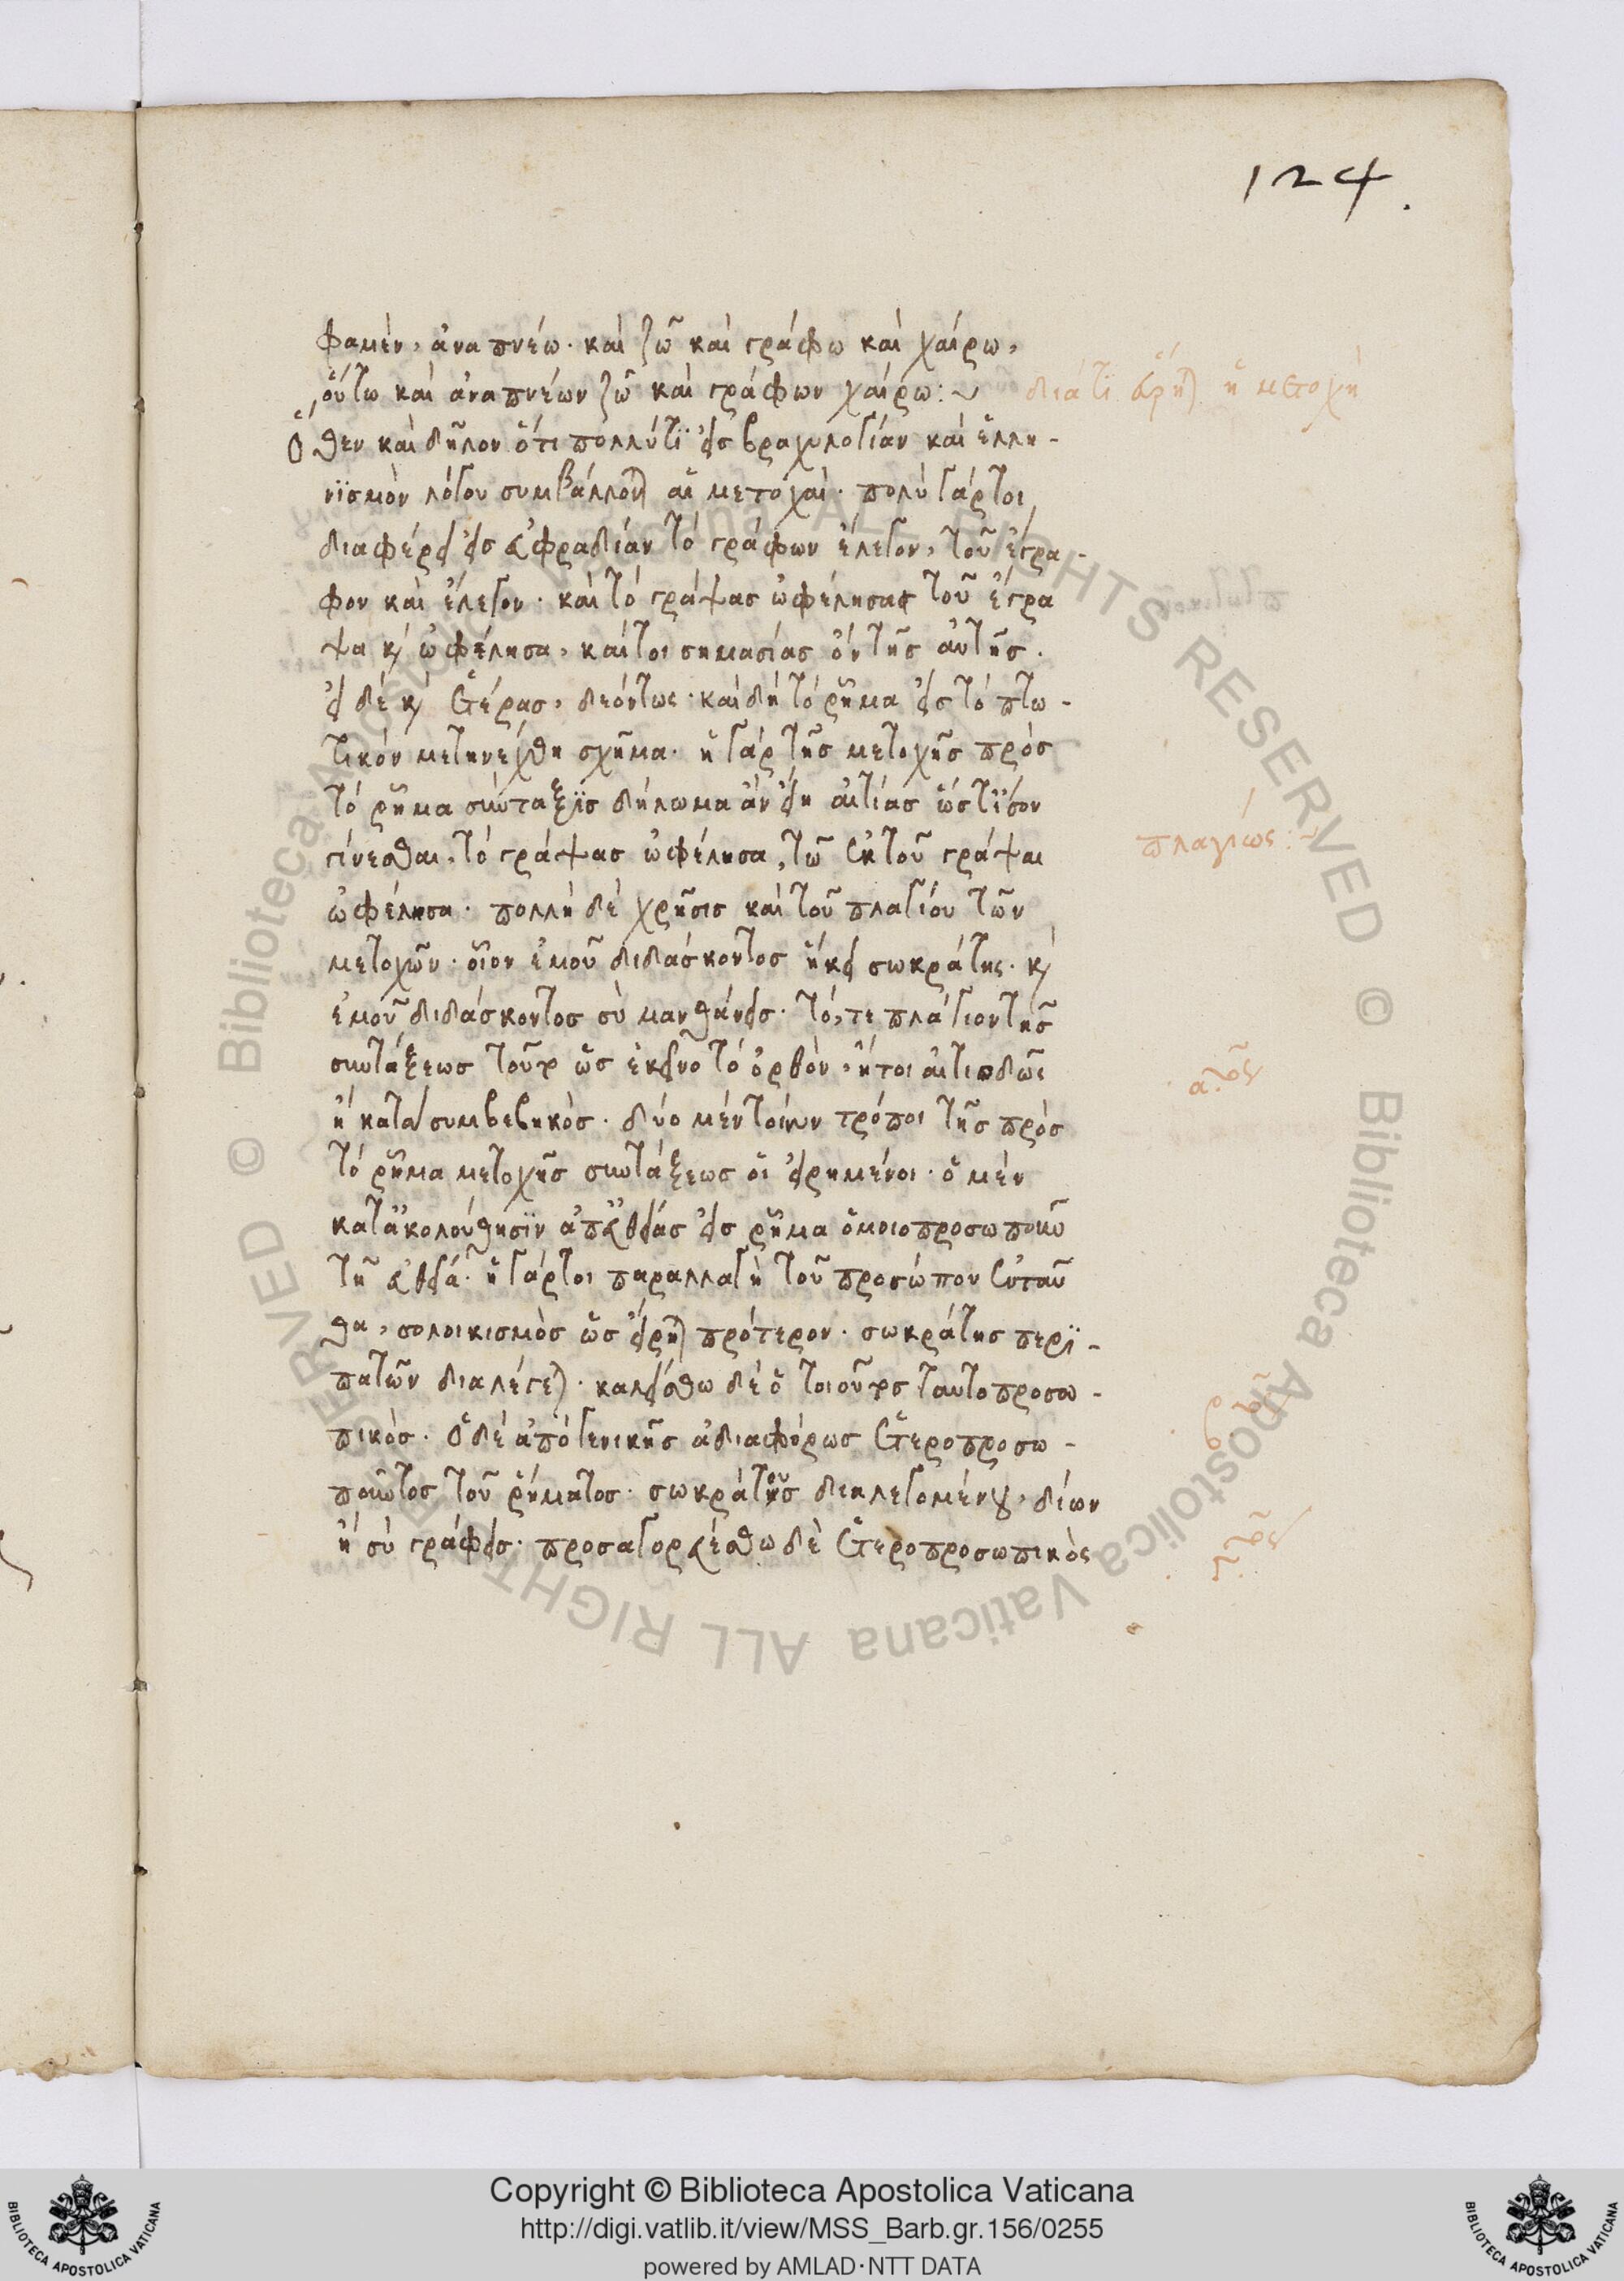 124.
φαμὲν, ἀναπνέω· καὶ ζῶ καὶ γράφω καὶ χαίρω,
οὕτω καὶ ἀναπνέων ζῶ καὶ γράφων χαίρω:~ διάτι εὕρηται ἡ μετοχὴ
Ὅθεν καὶ δῆλον ὅτι πολλύ τι εἰς βραχυλογίαν καὶ ἑλλη-
νισμὸν λόγου συμβάλλονται αἱ μετοχαὶ· πολὺ γάρ τοι
διαφέρει εἰς εὐφραδίαν τὸ γράφων ἔλεγον, τοῦ ἔγρα-
φον καὶ ἔλεγον· καὶ τὸ γράψας ὠφέλησας τοῦ ἔγρα
ψα κ ὠφέλησα, καίτοι σημασίας ὂν τῆς αὐτῆς.
εἰ δὲ κ ἑτέρας, δεόντως· καὶ δὴ τὸ ῥῆμα εἰς τὸ πτω-
τικὸν μετηνέχθη σχῆμα· ἡ γὰρ τῆς μετοχῆς πρὸς
τὸ ῥῆμα σύνταξις δήλωμα ἂν εἴη αἰτίας ὥστ ἴσον
γίνεσθαι, τὸ γράψας ὠφέλησα, τῶ ἐκ τοῦ γράψαι πλαγίως:~
ὠφέλησα· πολλὴ δὲ χρῆσις καὶ τοῦ πλαγίου τῶν
μετοχῶν· οἷον ἐμοῦ διδάσκοντος ἥκει σωκράτης· κ
ἐμοῦ διδάσκοντος σὺ μανθάνεις· τό, τε πλάγιον τῆς
συντάξεως τοῦτο ὡς ἐκεῖνο τὸ ὀρθὸν, ἤτοι αἰτιωδῶς α.ος
ἢ κατὰ συμβεβηκὸς· δύο μέν τοίνυν τρόποι τῆς πρὸς
τὸ ῥῆμα μετοχῆς συντάξεως οἱ εἰρημένοι· ὁ μὲν
κατ ἀκολούθησιν ἀπ εὐθείας εἰς ῥῆμα ὁμοιοπροσωποῦν
τῆ εὐθεία· ἡ γάρ τοι παραλλαγὴ τοῦ προσώπου ἐνταῦ
θα, σολοικισμὸς ὡς εἴρηται πρότερον· σωκράτης περι-
πατῶν διαλέγεται· καλείσθω δὲ ὁ τοιοῦτος ταυτοπροσω-
πικὸς· ὁ δὲ ἀπὸ γενικῆς ἀδιαφόρως ἑτεροπροσω-
ποῦντος τοῦ ῥήματος· σωκράτους διαλεγομένου, δίων
ἢ σὺ γράφεις· προσαγορευέσθω δὲ ἑτεροπροσωπικὸς
Copyright © Biblioteca Apostolica Vaticana
http://digi.vatlib.it/view/MSS_Barb.gr.156/0255
powered by AMLAD·NTT DATA